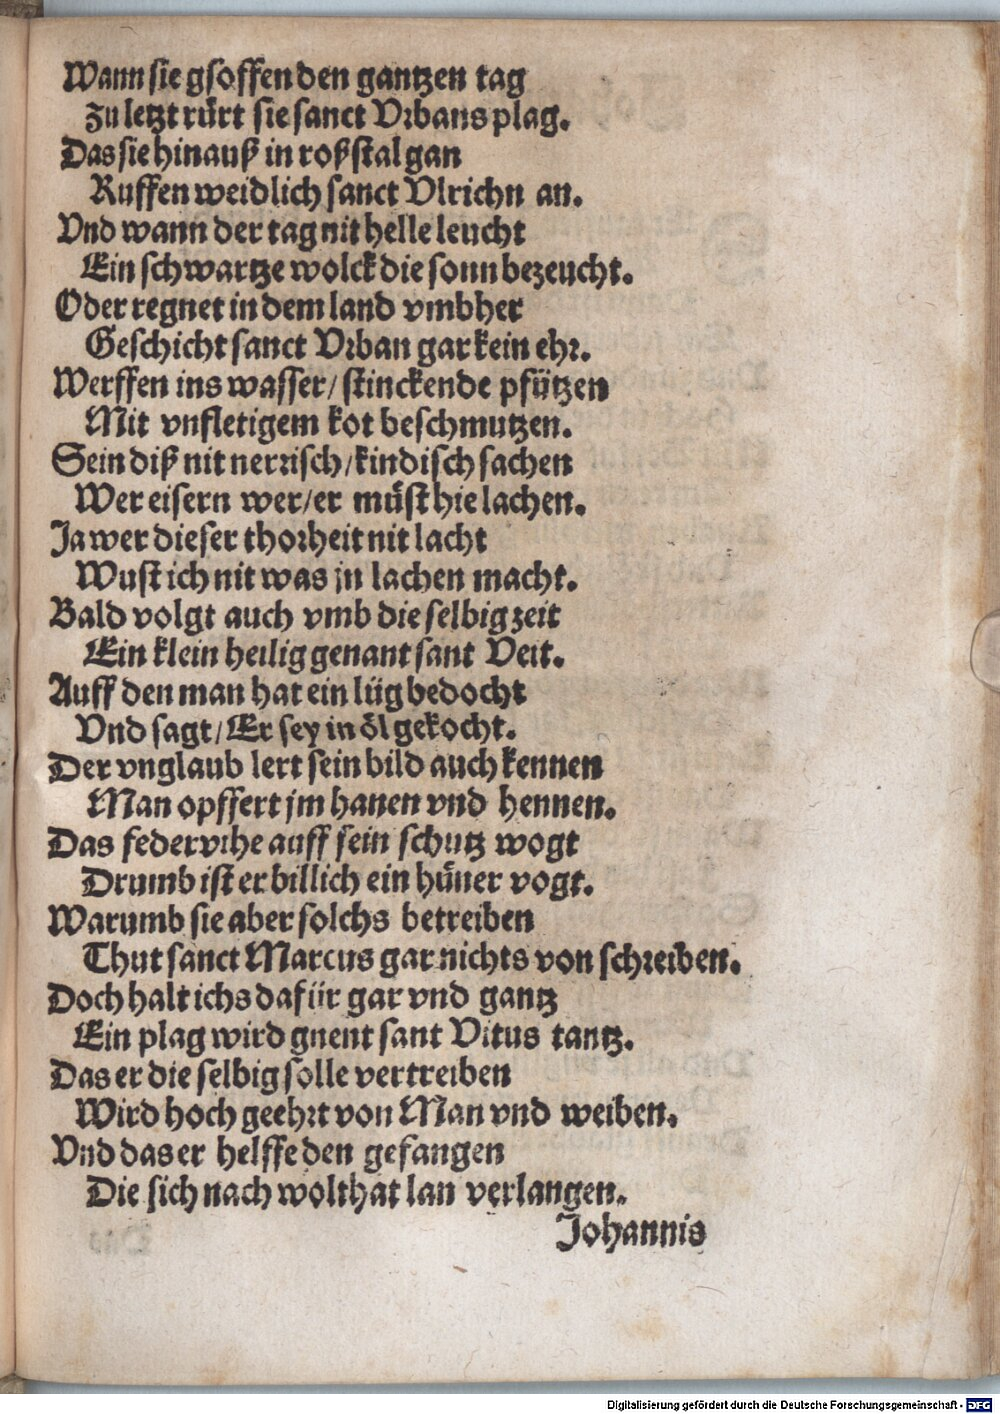 Wann sie gsoffen den gantzen tag
Zu letzt rürt sie sanct Vrbans plag.
Das sie hinauß in roßstal gan
Ruffen weidlich sanct Vlrichn an.
Vnd wann der tag nit helle leucht
Ein schwartze wolck die sonn bezeucht.
Oder regnet in dem land vmbher
Geschicht sanct Vrban gar kein ehr.
Werffen ins wasser/ stinckende pfützen
Mit vnfletigem kot beschmutzen.
Sein diß nit nerrisch/ kindisch sachen
Wer eisern wer/ er müst hie lachen.
Ja wer dieser thorheit nit lacht
Wust ich nit was jn lachen macht.
Bald volgt auch vmb die selbig zeit
Ein klein heilig genant sant Veit.
Auff den man hat ein lüg bedocht
Vnd sagt/ Er sey in öl gekocht.
Der vnglaub lert sein bild auch kennen
Man opffert jm hanen vnd hennen.
Das federvihe auff sein schutz wogt
Drumb ist er billich ein hüner vogt.
Warumb sie aber solchs betreiben
Thut sanct Marcus gar nichts von schreiben.
Doch halt ichs dafür gar vnd gantz
Ein plag wird gnent sant Vitus tantz.
Das er die selbig solle vertreiben
Wird hoch geehrt von Man vnd weiben.
Vnd das er helffe den gefangen
Die sich nach wolthat lan verlangen.
Johannis
Digitalisierung gefördert durch die Deutsche Forschungsgemeinschaft - DFG